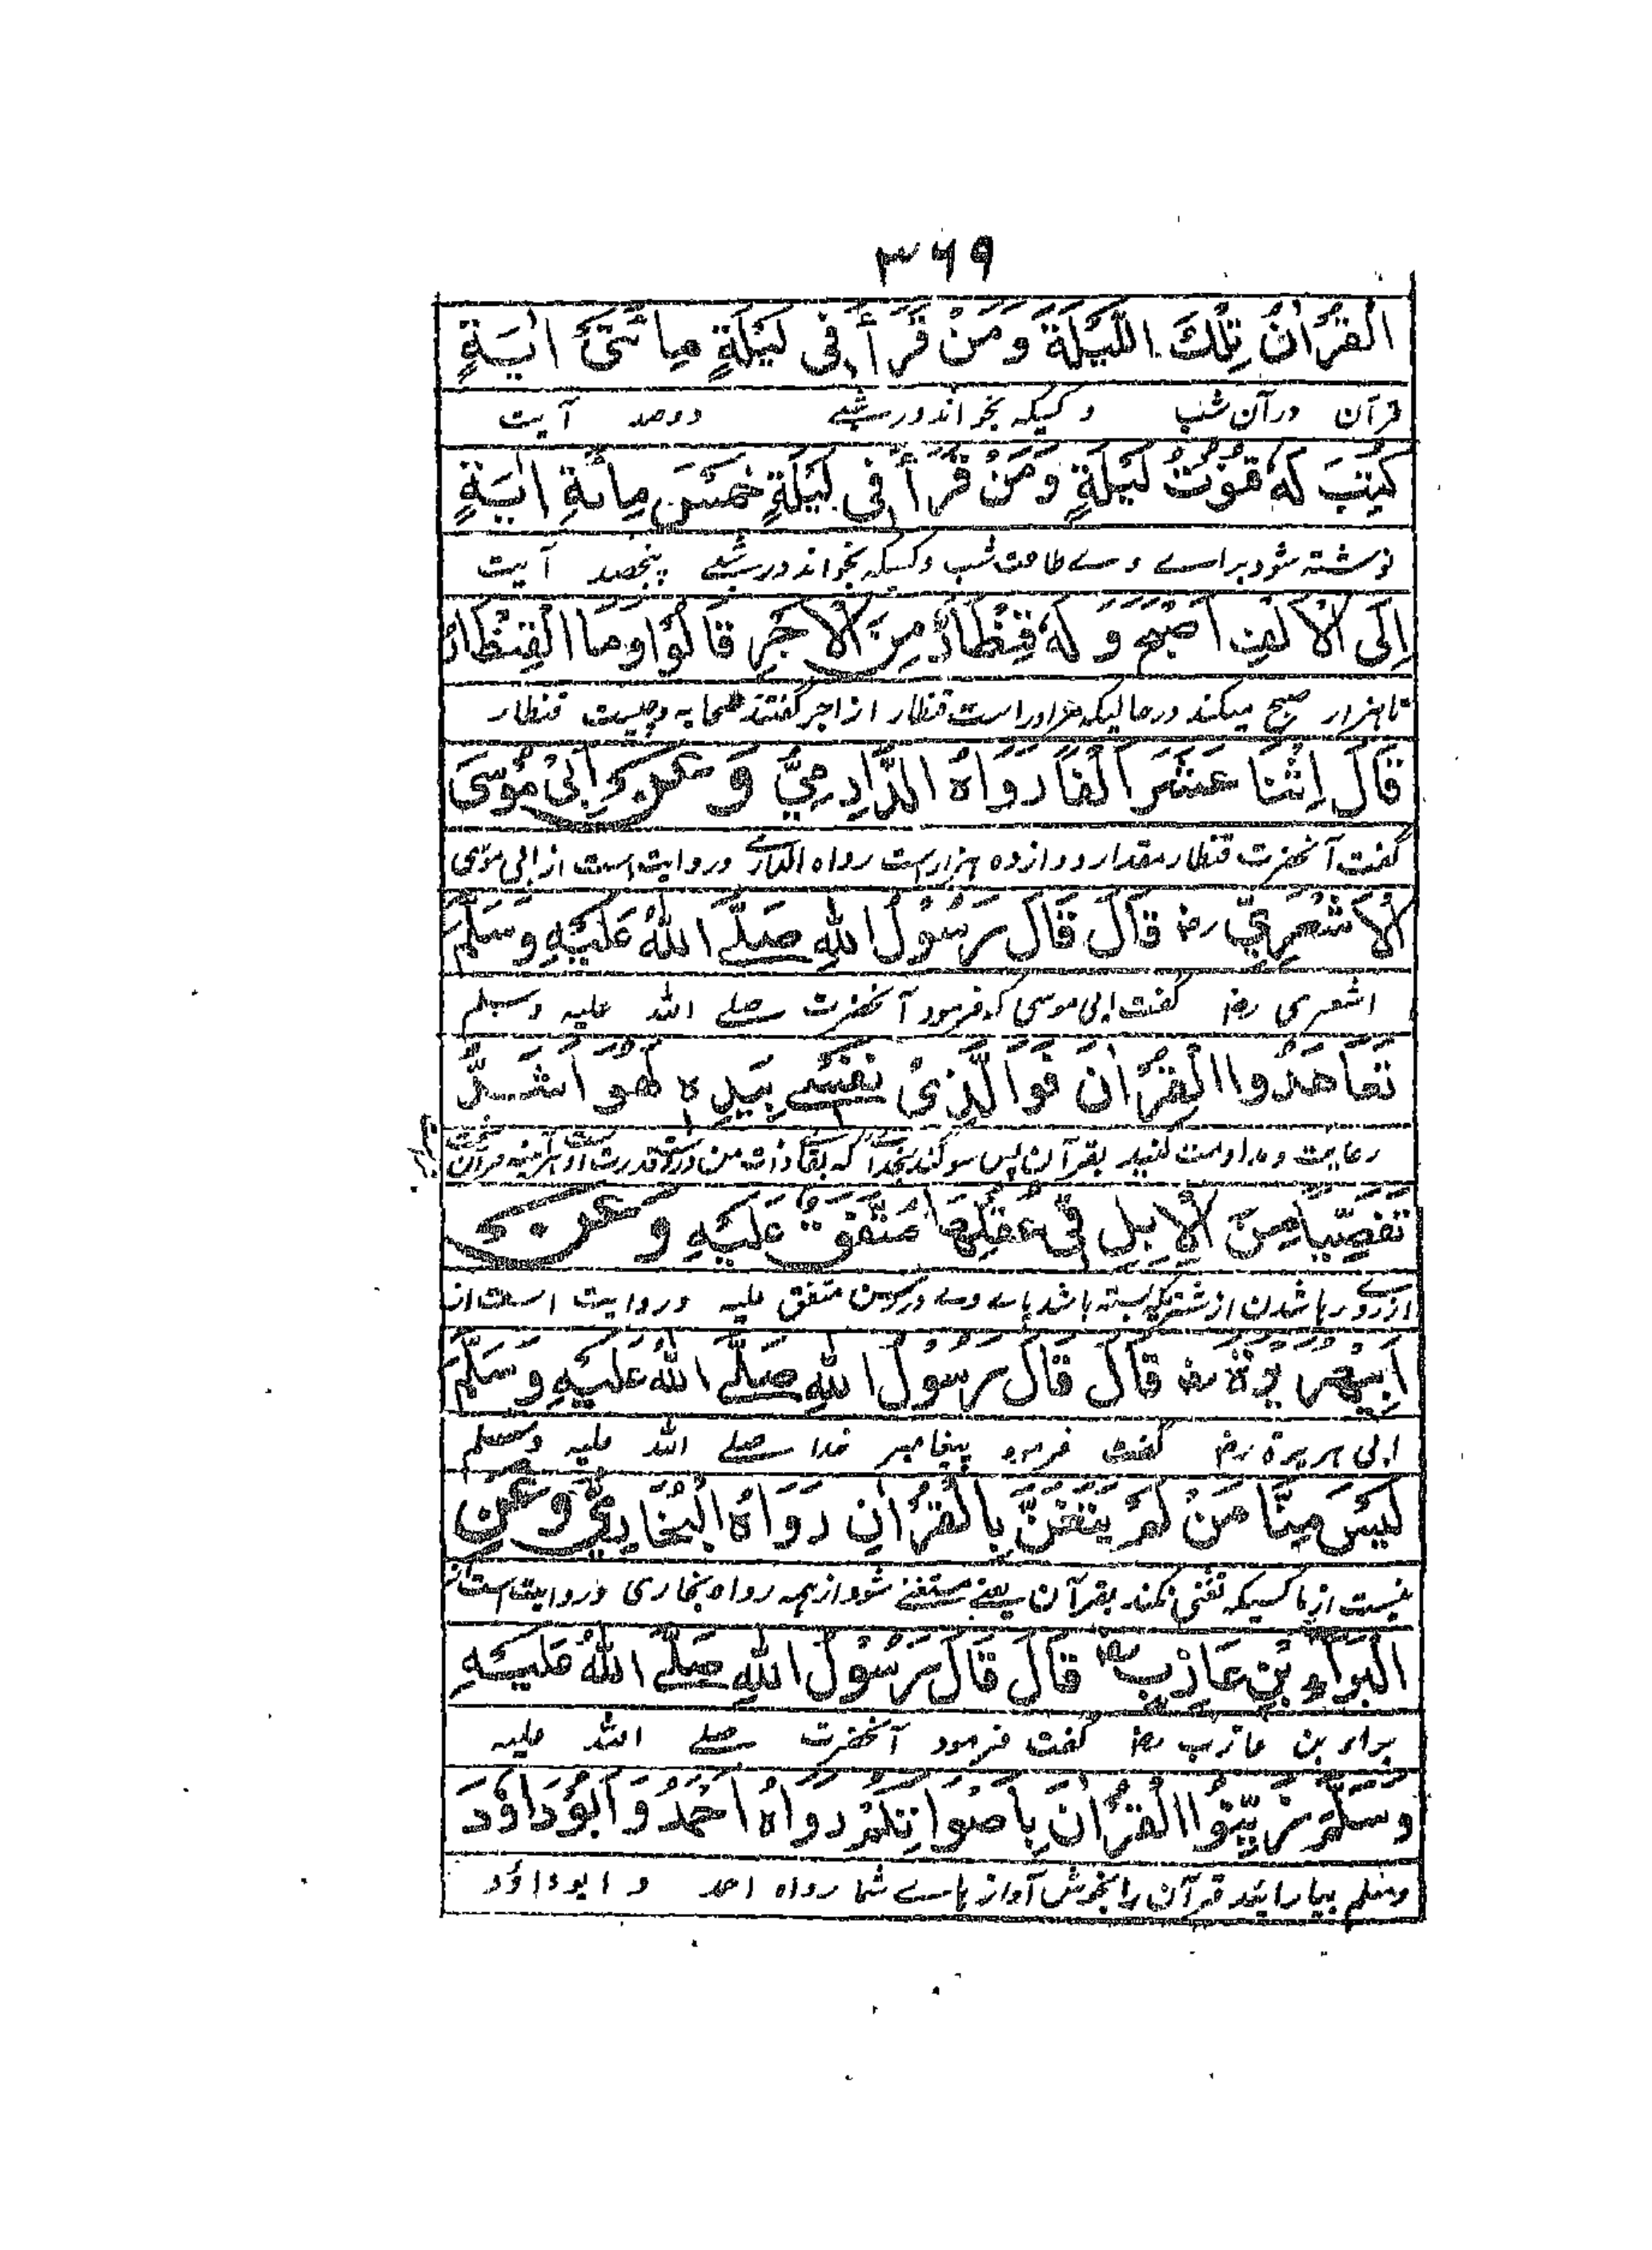 ۳۶۹
الْقُرْاٰنُ تِلْكَ اللَّيْلَةَ وَمَنْ قَرَأَ فِي لَيْلَةٍ مِائَتَيْ اٰيَةٍ
قرآن درآن شب وکسیکه بخواند در شبے دوصد آیت
كُتِبَ لَهٗ قُنُوْتُ لَيْلَةٍ وَمَنْ قَرَأَ فِي لَيْلَةٍ خَمْسَ مِائَةِ اٰيَةٍ
نوشته شود براے وے طاعت شب وکسیکه بخواند در شبے پنجصد آیت
اِلَى الْاَلْفِ اَصْبَحَ وَلَهٗ قِنْطَارٌ مِنَ الْاَجْرِ قَالُوْا وَمَا الْقِنْطَارُ
تاهزار صبح میکند درحالیکه مر اوراست قنطار از اجر گفتند صحابه وچیست قنطار
قَالَ اِثْنَا عَشَرَ اَلْفًا رَوَاهُ الدَّارِمِيُّ وَعَنْ اَبِيْ مُوْسَى
گفت آنحضرت قنطار مقدار دوازده هزار است رواه الدارمے وروایت است از ابی موسی
الْاَشْعَرِيِّ رض قَالَ قَالَ رَسُوْلُ اللهِ صَلَّے اللهُ عَلَيْهِ وَسَلَّمَ
اشعری رض گفت ابی موسی که فرمود آنحضرت صلے الله علیه وسلم
تَعَاهَدُوا الْقُرْاٰنَ فَوَالَّذِيْ نَفْسِے بِيَدِهٖ لَهُوَ اَشَدُّ
رعایت ومداومت کنید بقرآن پس سوگند بخدا که بقاء ذات من در دست قدرت اوست هرآئینه قرآن
تَفَصِّيًا مِنَ الْاِبِلِ فِيْ عُقُلِهَا مُتَّفَقٌ عَلَيْهِ وَعَنْ
ازروے رها شدن از شتریکه بسته باشد پاے وے در رسن متفق علیه وروایت است از
اَبِيْهُرَيْرَةَ رض قَالَ قَالَ رَسُوْلُ اللهِ صَلَّے اللهُ عَلَيْهِ وَسَلَّمَ
ابی هریرة رض گفت فرمود پیغامبر خدا صلے الله علیه وسلم
لَيْسَ مِنَّا مَنْ لَمْ يَتَغَنَّ بِالْقُرْاٰنِ رَوَاهُ الْبُخَارِيُّ وَعَنِ
نیست از ما کسیکه تغنی نکند بقرآن یعنے مستغنے شود از همه رواه بخاری وروایت است از
الْبَرَاءِ بْنِ عَازِبٍ رض قَالَ قَالَ رَسُوْلُ اللهِ صَلَّے اللهُ عَلَيْهِ
براء بن عازب رض گفت فرمود آنحضرت صلے الله علیه
وَسَلَّمَ زَيِّنُوا الْقُرْاٰنَ بِاَصْوَاتِكُمْ رَوَاهُ اَحْمَدُ وَاَبُوْدَاوٗدَ
وسلم بیارائید قرآن را بخوش آواز هاے شما رواه احمد و ابوداؤد